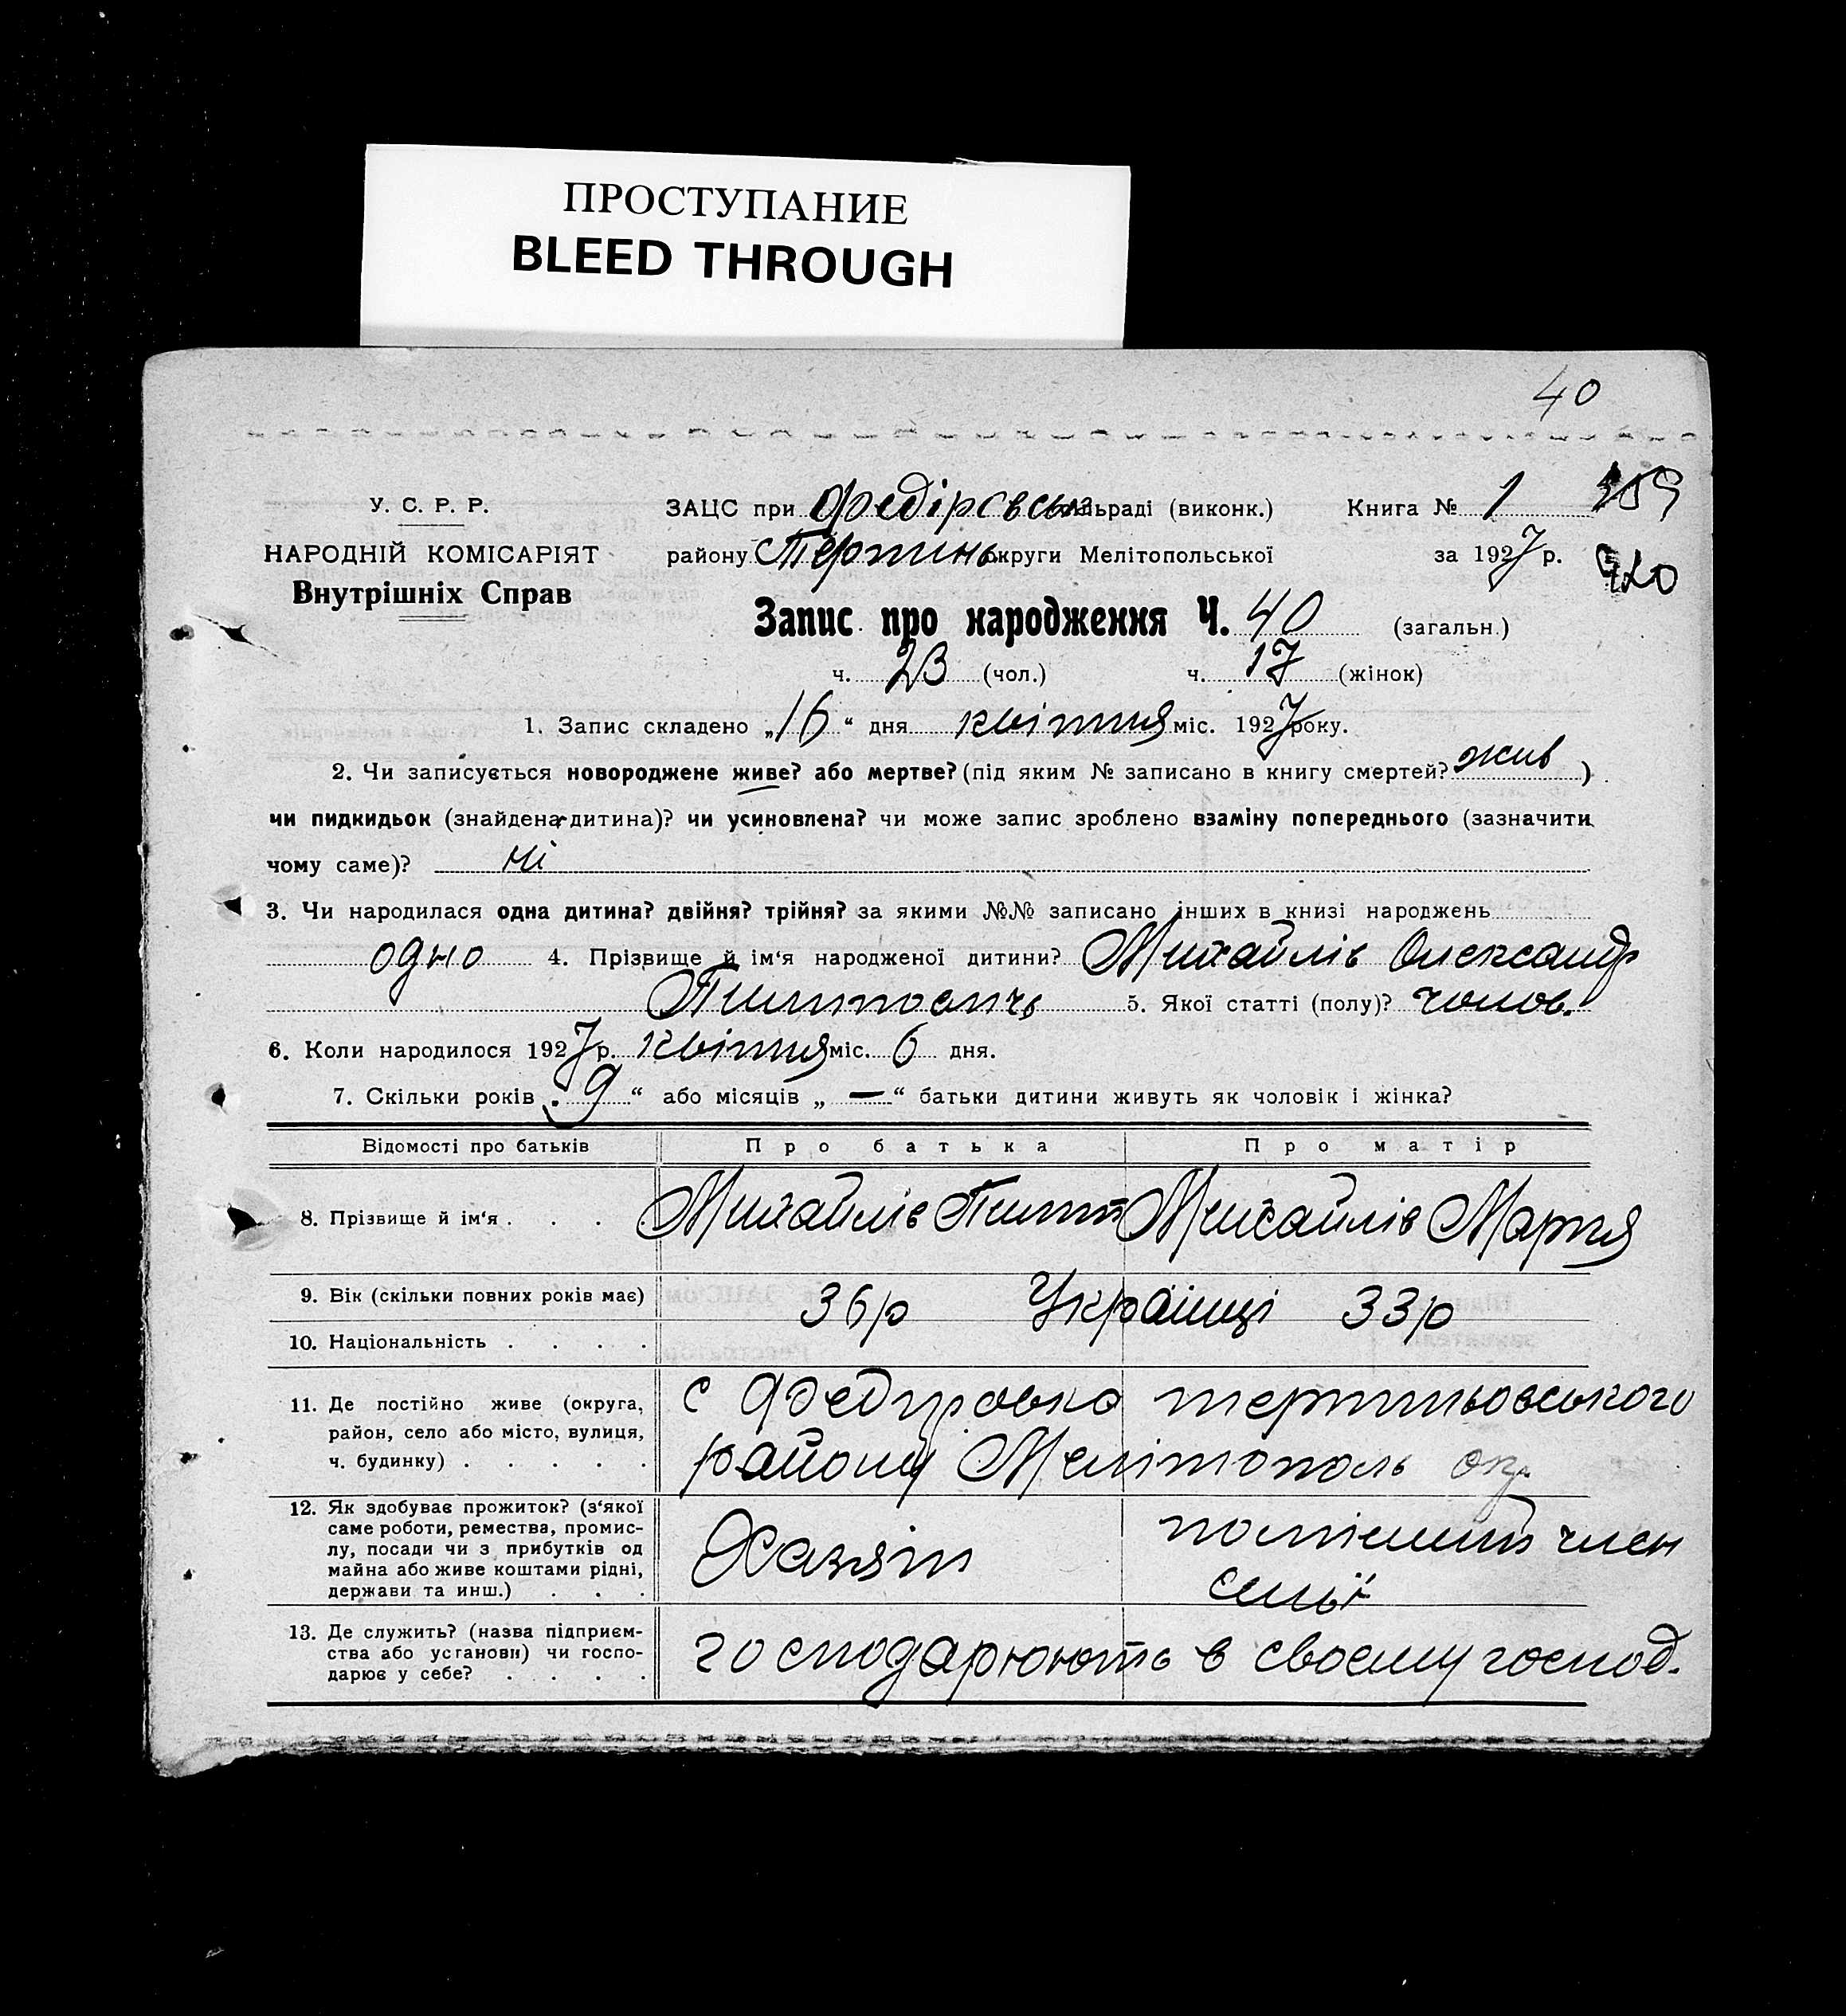 ПРОСТУПАНИЕ
BLEED THROUGH
40
У. С. Р. Р.
НАРОДНІЙ КОМІСАРІЯТ
Внутрішніх Справ
ЗАЦС при Федіровськ сільраді (виконк.) Книга № 1
району Терпинь округи Мелітопольської за 1927 р.
Запис про народження Ч. 40 (загальн.)
ч. 23 (чол.) ч. 17 (жінок)
1. Запис складено „16“ дня квітня міс. 1927 року.
2. Чи записується новороджене живе? або мертве? (під яким № записано в книгу смертей? жив )
чи пидкидьок (знайдена дитина)? чи усиновлена? чи може запис зроблено взаміну попереднього (зазначити
чому саме)? ні
3. Чи народилася одна дитина? двійня? трійня? за якими №№ записано інших в книзі народжень
одно 4. Прізвище й ім‘я народженої дитини? Михайлів Олександр
5. Якої статті (полу)? чолов.
6. Коли народилося 1927 р. квітня міс. 6 дня.
7. Скільки років „9“ або місяців „—“ батьки дитини живуть як чоловік і жінка?
Відомості про батьків Про батька Про матір
8. Прізвище й ім‘я . . . . Михайлів Пилип Михайлів Мария
9. Вік (скільки повних років має) 36 р Українці 33 р
10. Національність . . . .
11. Де постійно живе (округа, район, село або місто, вулиця, ч. будинку) . . . . .
с Федировка терпиньовського
району Мелітополь окр
12. Як здобуває прожиток? (з‘якої саме роботи, ремества, промислу, посади чи з прибутків од майна або живе коштами рідні, держави та инш.) . . .
Хазяін
член
семьї
13. Де служить? (назва підприємства або установи) чи господарює у себе? . . . .
господарюють в своєму господ.